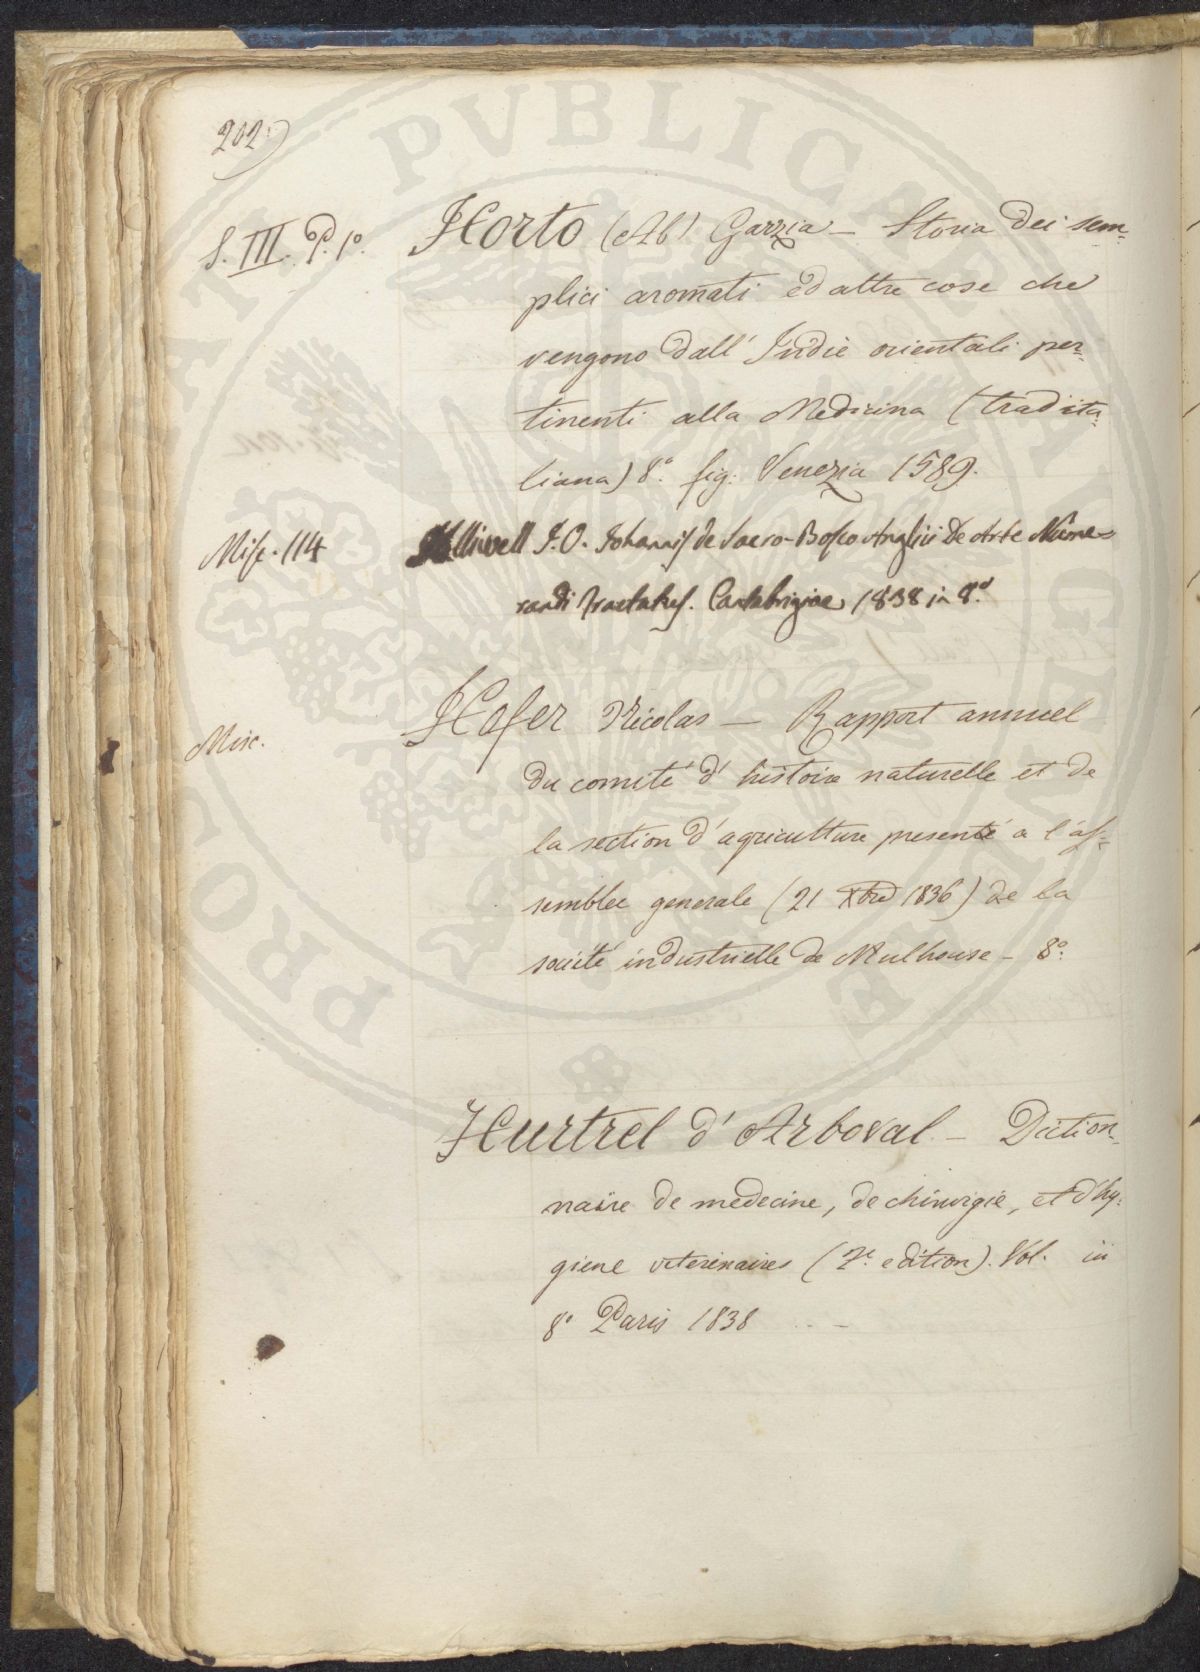 202)
S. III. P. 1º. Horto (Ab) Garzia — Storia dei sem-
plici aromati ed altre cose che
vengono dall' Indie orientali per-
tinenti alla Medicina (trad ita-
liana) 8º. fig. Venezia 1589.
Misc. 114 Halliwell J. O. Johannis de Sacro-Bosco Anglici De Arte Nume=
randi Tractatus. Cantabrigiae, 1838 in 8.º
Misc. Hofer Nicolas — Rapport annuel
du comité d' histoire naturelle et de
la section d' agriculture presenté a l'as-
semblee generale (21 Xbre 1836) de la
société industrielle de Mulhouse — 8º.
Hurtrel d' Arboval — Diction-
naire de medecine, de chirurgie, et d'hy-
giene veterinaires (2e. edition). Vol. in
8º Paris 1838
PROBATI PVBLICAE